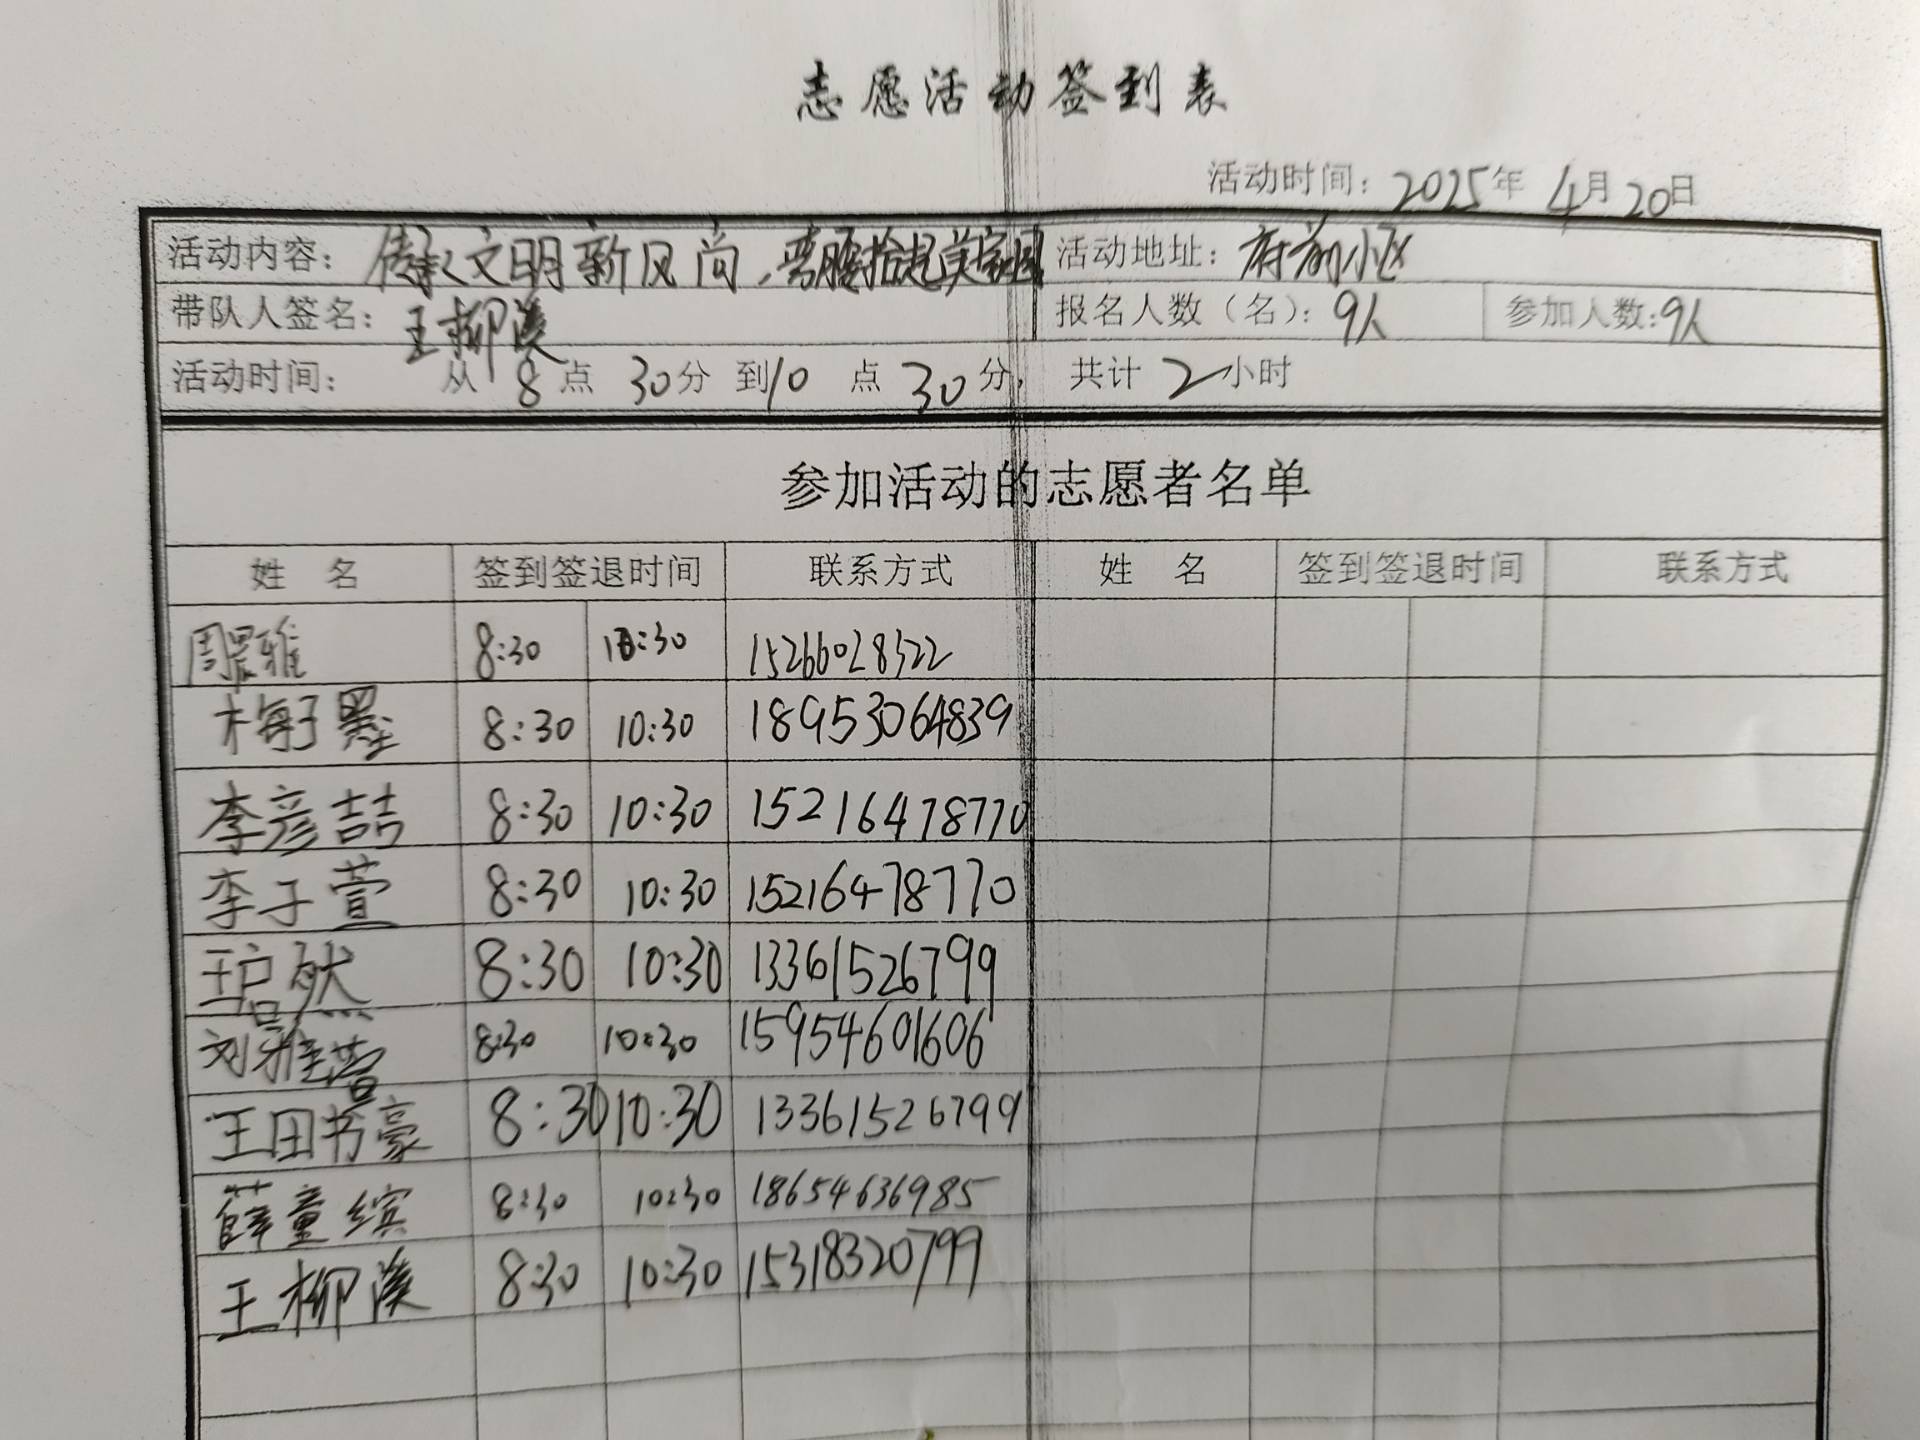 志愿活动签到表
活动时间：2025年 4月20日
活动内容：传承文明新风尚，弯腰拾起美家园 活动地址：府前小区
带队人签名：王柳溪 报名人数（名）：9人 参加人数：9人
活动时间： 从 8 点 30分 到10 点 30分， 共计 2小时
参加活动的志愿者名单
姓 名 签到签退时间 联系方式 姓 名 签到签退时间 联系方式
周晨雅 8:30 10:30 15266028322
梅子墨 8:30 10:30 18953064839
李彦喆 8:30 10:30 15216478770
李子萱 8:30 10:30 15216478770
王 然 8:30 10:30 13361526799
刘雅萱 8:30 10:30 15954601606
王田书豪 8:30 10:30 13361526799
薛童缤 8:30 10:30 18654636985
王柳溪 8:30 10:30 15318320799